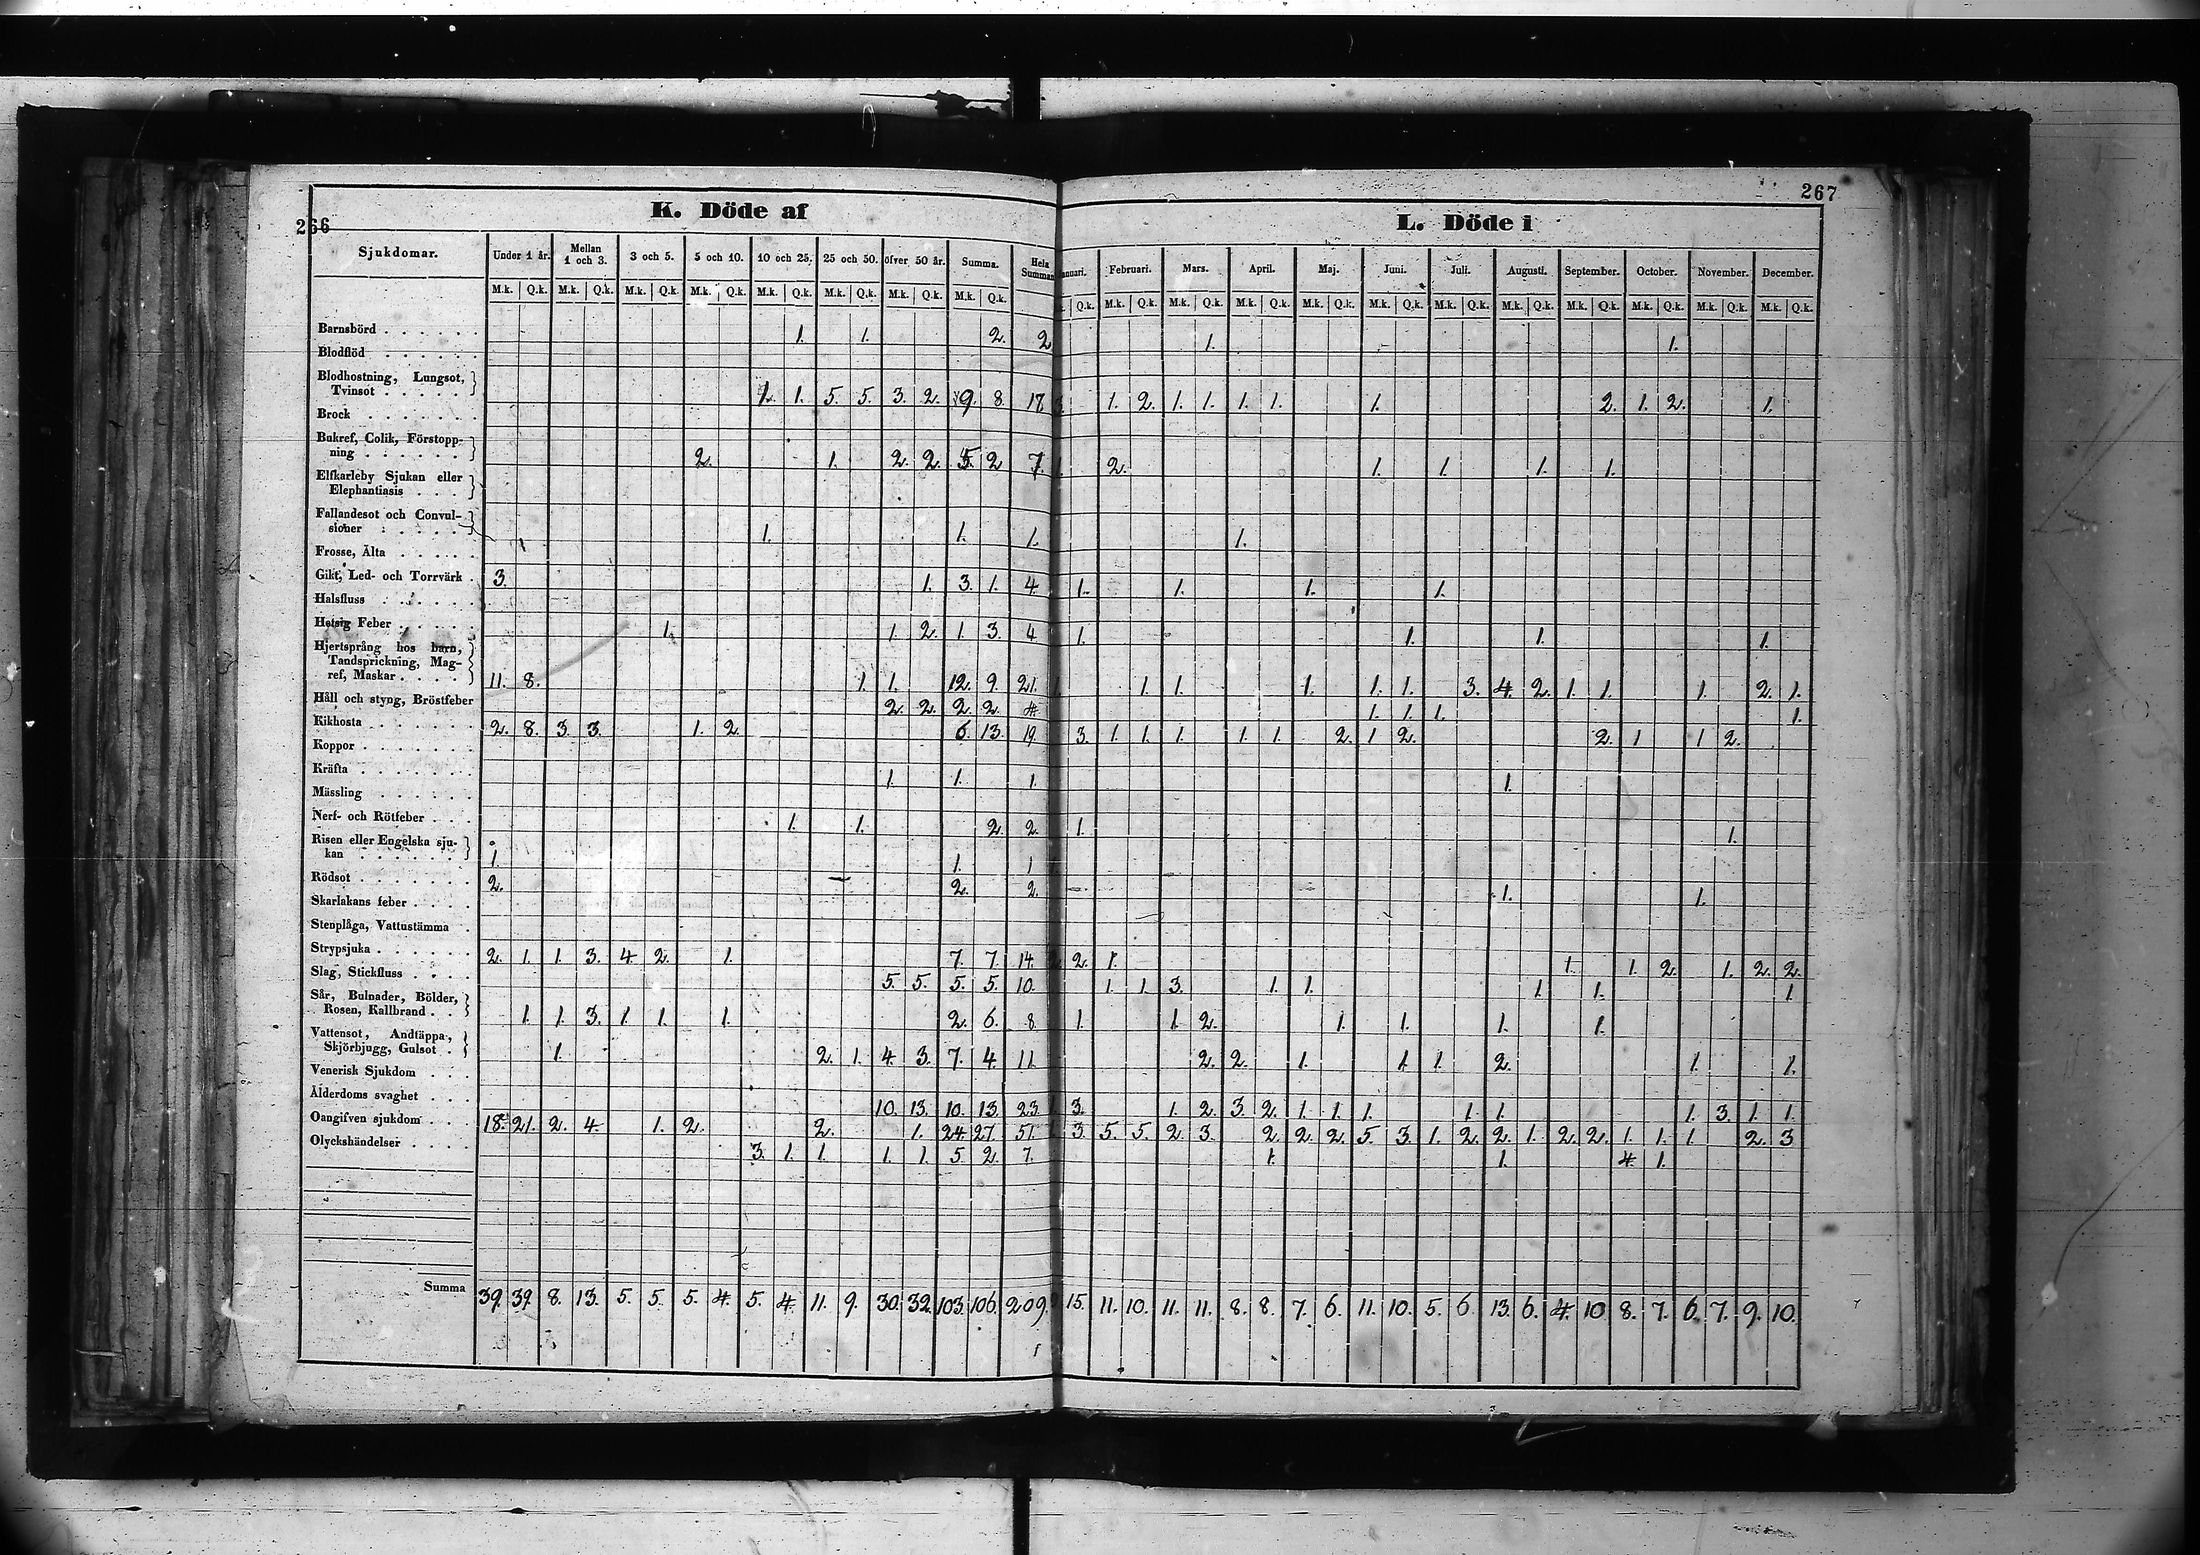 266
K. Döde af
Sjukdomar. Under 1 år. Mellan 1 och 3. 3 och 5. 5 och 10. 10 och 25. 25 och 50. öfver 50 år. Summa. Hela Summan
M.k. Q.k. M.k. Q.k. M.k. Q.k. M.k. Q.k. M.k. Q.k. M.k. Q.k. M.k. Q.k. M.k. Q.k.
Barnsbörd 1. 1. 2. 2
Blodflöd
Blodhostning, Lungsot,
Tvinsot 1. 1. 5. 5. 3. 2. 9. 8. 17
Brock
Bukref, Colik, Förstopp-
ning 2. 1. 2. 2. 5. 2 7.
Elfkarleby Sjukan eller
Elephantiasis
Fallandesot och Convul-
sioner 1. 1. 1.
Frosse, Älta
Gikt, Led- och Torrvärk 3. 1. 3. 1. 4.
Halsfluss
Hetsig Feber 1. 1. 2. 1. 3. 4
Hjertsprång hos barn,
Tandsprickning, Mag-
ref, Maskar 11. 8. 1. 1. 12. 9. 21.
Håll och styng, Bröstfeber 2. 2. 2. 2. 4.
Kikhosta 2. 8. 3. 3. 1. 2. 6. 13. 19
Koppor
Kräfta 1. 1. 1.
Mässling
Nerf- och Rötfeber 1. 1. 2. 2.
Risen eller Engelska sju-
kan 1. 1. 1
Rödsot 2. 2. 2.
Skarlakans feber
Stenplåga, Vattustämma
Strypsjuka 2. 1. 1. 3. 4. 2. 1. 7. 7. 14.
Slag, Stickfluss 5. 5. 5. 5. 10.
Sår, Bulnader, Bölder,
Rosen, Kallbrand 1. 1. 3. 1. 1. 1. 2. 6. 8.
Vattensot, Andtäppa,
Skjörbjugg, Gulsot 1. 2. 1. 4. 3. 7. 4. 11.
Venerisk Sjukdom
Ålderdoms svaghet 10. 13. 10. 13. 23.
Oangifven sjukdom 18. 21. 2. 4. 1. 2. 2. 1. 24. 27. 51.
Olyckshändelser 3. 1. 1. 1. 1. 5. 2. 7.
Summa 39. 39. 8. 13. 5. 5. 5. 4. 5. 4. 11. 9. 30. 32. 103. 106. 209.
267
L. Döde i
anuari. Februari. Mars. April. Maj. Juni. Juli. Augusti. September. October. November. December.
Q.k. M.k. Q.k. M.k. Q.k. M.k. Q.k. M.k. Q.k. M.k. Q.k. M.k. Q.k. M.k. Q.k. M.k. Q.k. M.k. Q.k. M.k. Q.k. M.k. Q.k.
1. 1.
3. 1. 2. 1. 1. 1. 1. 1. 2. 1. 2. 1.
1. 2. 1. 1. 1. 1.
1.
1. 1. 1. 1.
1. 1. 1. 1.
1. 1. 1. 1. 1. 1. 3. 4. 2. 1. 1. 1. 2. 1.
1. 1. 1. 1.
3. 1. 1. 1. 1. 1. 2. 1 2. 2. 1 1 2.
1.
1. 1.
1. 1.
2. 2. 1. 1. 1. 2. 1. 2. 2.
1. 1. 3. 1. 1. 1. 1. 1.
1. 1. 2. 1. 1. 1. 1.
2. 2. 1. 1. 1. 2. 1. 1.
1. 3. 1. 2. 3. 2. 1. 1. 1. 1. 1. 1. 3. 1. 1.
1. 3. 5. 5. 2. 3. 2. 2. 2. 5. 3. 1. 2. 2. 1. 2. 2. 1. 1. 1. 2. 3
1. 1. 4. 1.
15. 11. 10. 11. 11. 8. 8. 7. 6. 11. 10. 5. 6. 13. 6. 4. 10 8. 7. 6. 7. 9. 10.